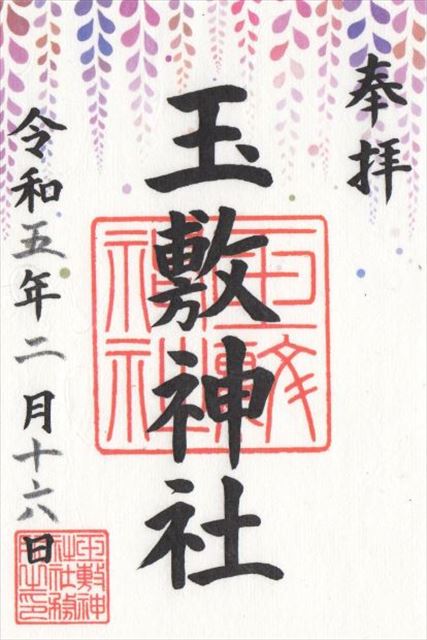 奉拝
玉敷神社
令和五年二月十六日
玉敷神社
玉敷神
社社務
所之印